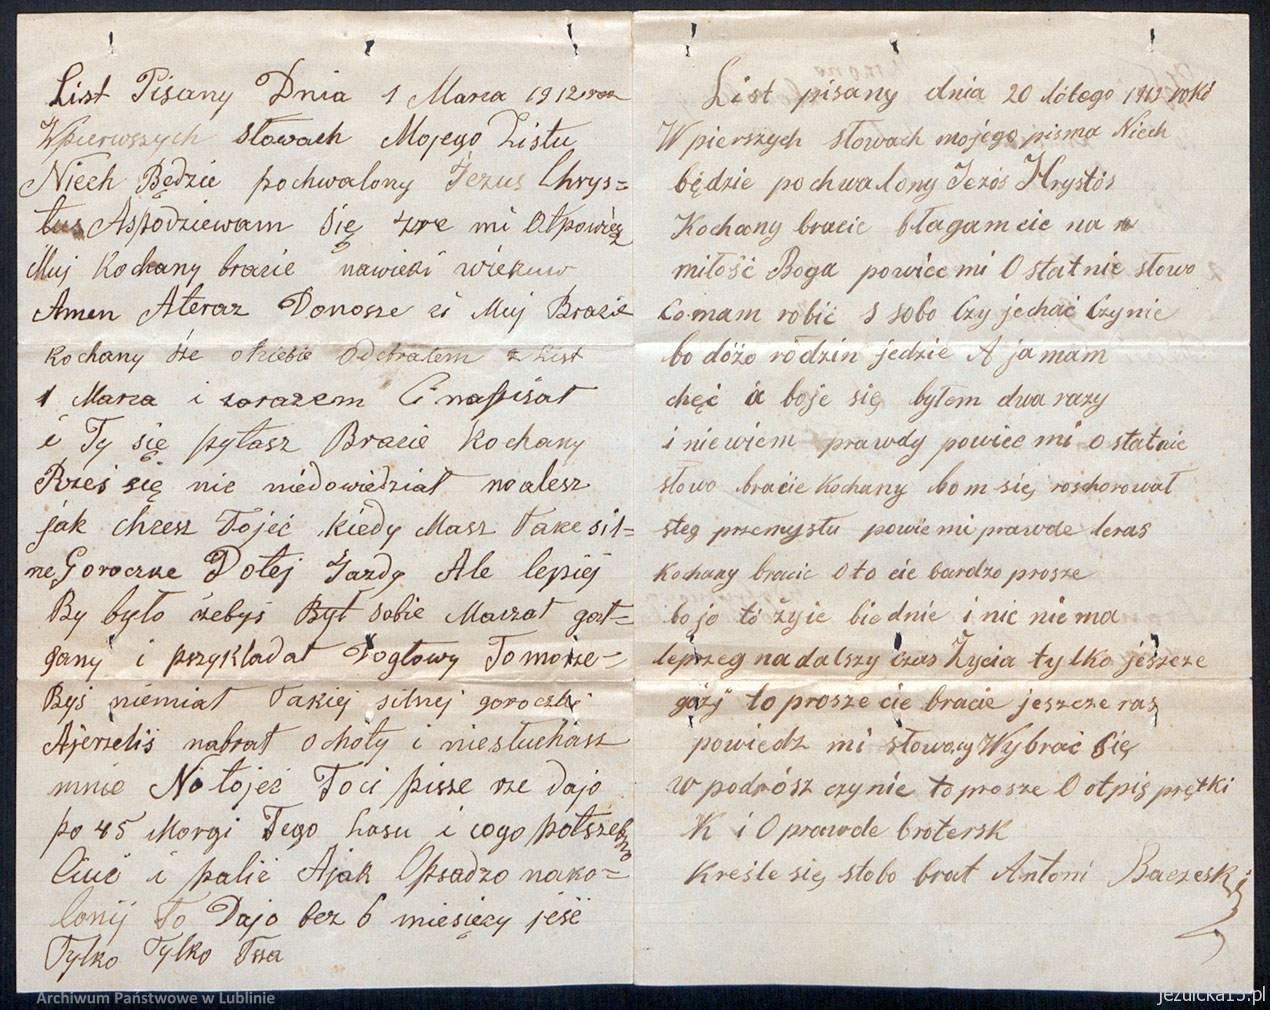 List Pisany Dnia 1 Marca 1912 rok
Wpierwszych słowach Mojego Listu
Niech Będzie pochwalony Jezus Chrys=
tus Aspodziewam się rze mi Otpowiesz
Muj kochany bracie nawieki wiekuw
Amen Ateraz Donosze ci Muj Bracie
kochany że otciebie Odebrałem List
1 Marca i zarazem Ci napisał
i Ty się pytasz Bracie kochany
Rześ się nic niedowiedział no alesz
jak chcesz Tojeć kiedy Masz Take sil=
ne Goroczke Dotej Jazdy Ale lepiej
By było rzebyś Był sobie Maszał gort=
gany i przykładał Dogłowy To morze=
Byś niemiał Takiej silnej goroczki
Ajerzeliś nabrał ochoty i niesłuchasz
mnie No tojeć To ci pisze rze dajo
po 45 Morgi Tego Lasu i cogo potrzebno
Ciuć i palić Ajak Opsadzo nako=
lonij To Dajo bez 6 miesięcy jeść
Tylko Tylko Trza
List pisany dnia 20 lótego 1912 roku
W pierszych słowach mojego pisma Niech
będzie pochwalony Jezós Hrystós
Kochany bracie błagam cie na
miłość Boga powicc mi Ostatnie słowo
Co mam robić s sobo Czy jechać Czy nie
bo dóżo rodzin jedzie A ja mam
chęć a boje się byłem dwa razy
i niewiem prawdy powiec mi ostatnie
słowo bracie Kochany bom się roschorował
steg przemysłu powie mi prawde teras
Kochany bracie Oto cie bardzo prosze
bo jo tó zyie biednie i nic nie ma
leprzeg na dalszy czas Zycia tylko jeszcze
góży to prosze cie bracie jeszcze ras
powiedz mi słowo czy Wybrać się
w podrósz czy nie to prosze O otpis prętki
K i O prawde brotersk
Kreśle się stobo brat Antoni Baczeski
Archiwum Państwowe w Lublinie
jezuicka13.pl